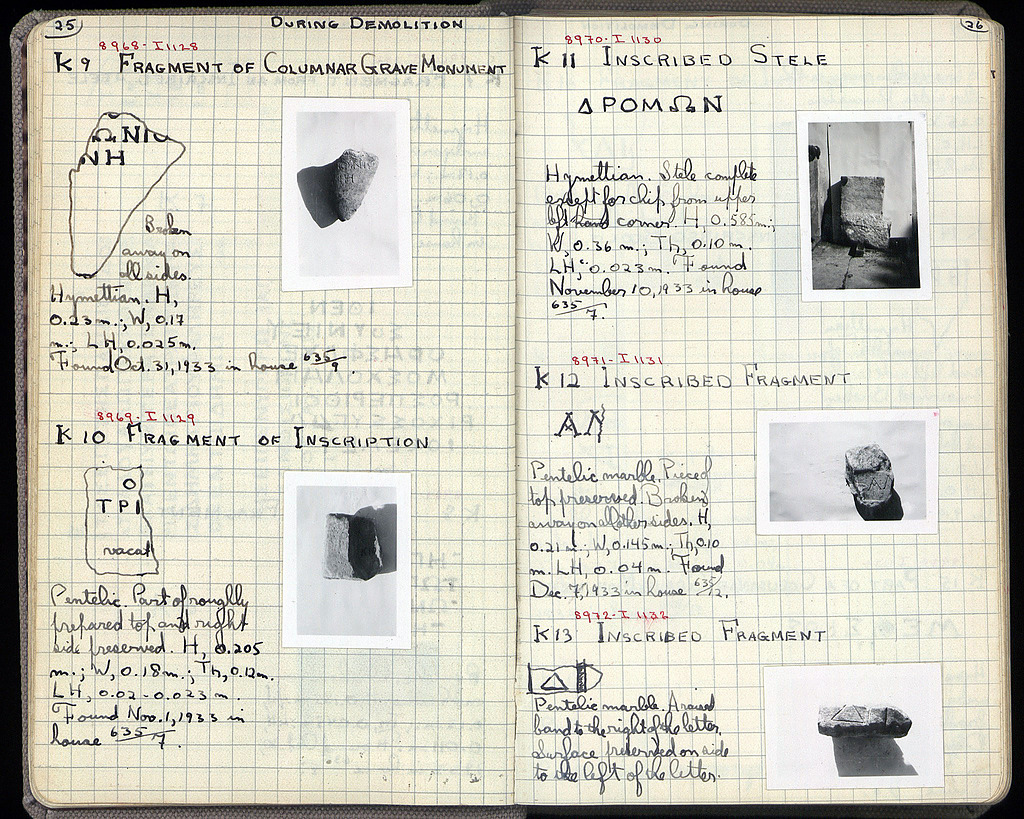 25
DURING DEMOLITION
8968 - I 1128
K 9 FRAGMENT OF COLUMNAR GRAVE MONUMENT
ΩΝΙ
ΝΗ
Broken
away on
all sides.
Hymettian. H,
0.23 m.; W, 0.17
m.; LH, 0.025 m.
Found Oct. 31, 1933 in house 635/9.
8969 - I 1129
K 10 FRAGMENT OF INSCRIPTION
Ο
ΤΡΙ
vacat
Pentelic. Part of roughly
prepared top and right
side preserved. H, 0.205
m.; W, 0.18 m.; Th, 0.12 m.
LH, 0.02 - 0.023 m.
Found Nov. 1, 1933 in
house 635/7.
26
8970 - I 1130
K 11 INSCRIBED STELE
ΔΡΟΜΩΝ
Hymettian. Stele complete
except for chip from upper
left hand corner. H, 0.585 m.;
W, 0.36 m.; Th, 0.10 m.
LH, 0.023 m. Found
November 10, 1933 in house
635/7.
8971 - I 1131
K 12 INSCRIBED FRAGMENT
ΑΛ
Pentelic marble. Pieced
top preserved. Broken
away on all other sides. H,
0.21 m.; W, 0.145 m.; Th, 0.10
m. LH, 0.04 m. Found
Dec. 7, 1933 in house 635/12.
8972 - I 1132
K 13 INSCRIBED FRAGMENT
Δ
Pentelic marble. A raised
band to the right of the letter.
Surface preserved on side
to the left of the letter.